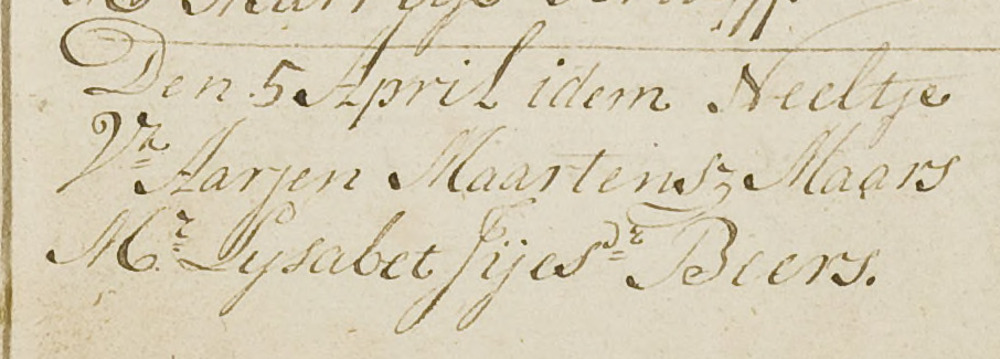 Den 5 April idem Neeltje
Vr Aarjen Maartensz Maars
Mr Lysabet Jijes dr Beers.